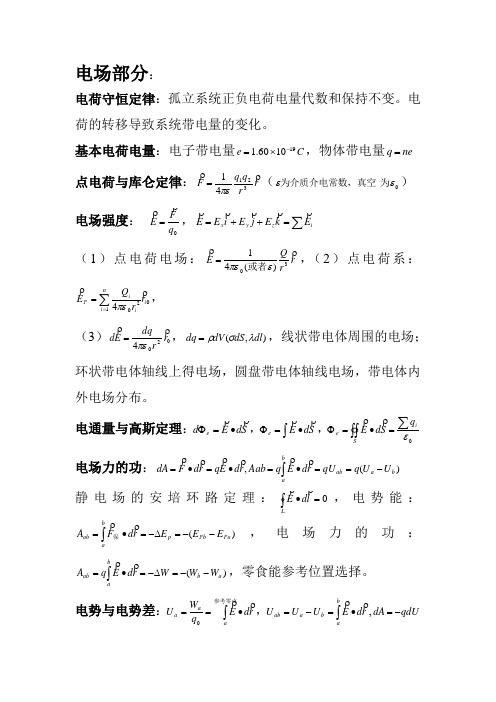 电场部分:
电荷守恒定律:孤立系统正负电荷电量代数和保持不变。电
荷的转移导致系统带电量的变化。
基本电荷电量:电子带电量 $e=1.60\times10^{-19}C$,物体带电量 $q=ne$
点电荷与库仑定律:$\vec{F}=\frac{1}{4\pi\varepsilon}\frac{q_1q_2}{r^3}\vec{r}$(ε为介质介电常数,真空 为$\varepsilon_0$)
电场强度: $\vec{E}=\frac{\vec{F}}{q_0}$,$\vec{E}=E_x\vec{i}+E_y\vec{j}+E_z\vec{k}=\sum\vec{E}_i$
(1)点电荷电场:$\vec{E}=\frac{1}{4\pi\varepsilon_0(或者\varepsilon)}\frac{Q}{r^3}\vec{r}$,(2)点电荷系:
$\vec{E}_P=\sum_{i=1}^{n}\frac{Q_i}{4\pi\varepsilon_0r_i^2}\vec{r}_{i0}$,
(3)$d\vec{E}=\frac{dq}{4\pi\varepsilon_0r^2}\vec{r}_0$,$dq=\rho dV(\sigma dS,\lambda dl)$,线状带电体周围的电场;
环状带电体轴线上得电场,圆盘带电体轴线电场,带电体内
外电场分布。
电通量与高斯定理:$d\Phi_e=\vec{E}\bullet d\vec{S}$,$\Phi_e=\int\vec{E}\bullet d\vec{S}$,$\Phi_e=\oiint_S\vec{E}\bullet d\vec{S}=\frac{\sum q_i}{\varepsilon_0}$
电场力的功:$dA=\vec{F}\bullet d\vec{r}=q\vec{E}\bullet d\vec{r},Aab=q\int_a^b\vec{E}\bullet d\vec{r}=qU_{ab}=q(U_a-U_b)$
静电场的安培环路定理:$\oint_L\vec{E}\bullet d\vec{l}=0$,电势能:
$A_{ab}=\int_a^b\vec{F}_{保}\bullet d\vec{r}=-\Delta E_p=-(E_{Pb}-E_{Pa})$,电场力的功:
$A_{ab}=q\int_a^b\vec{E}\bullet d\vec{r}=-\Delta W=-(W_b-W_a)$,零食能参考位置选择。
电势与电势差:$U_a=\frac{W_a}{q_0}=\int_a^{参考零点}\vec{E}\bullet d\vec{r}$,$U_{ab}=U_a-U_b=\int_a^b\vec{E}\bullet d\vec{r},dA=-qdU$